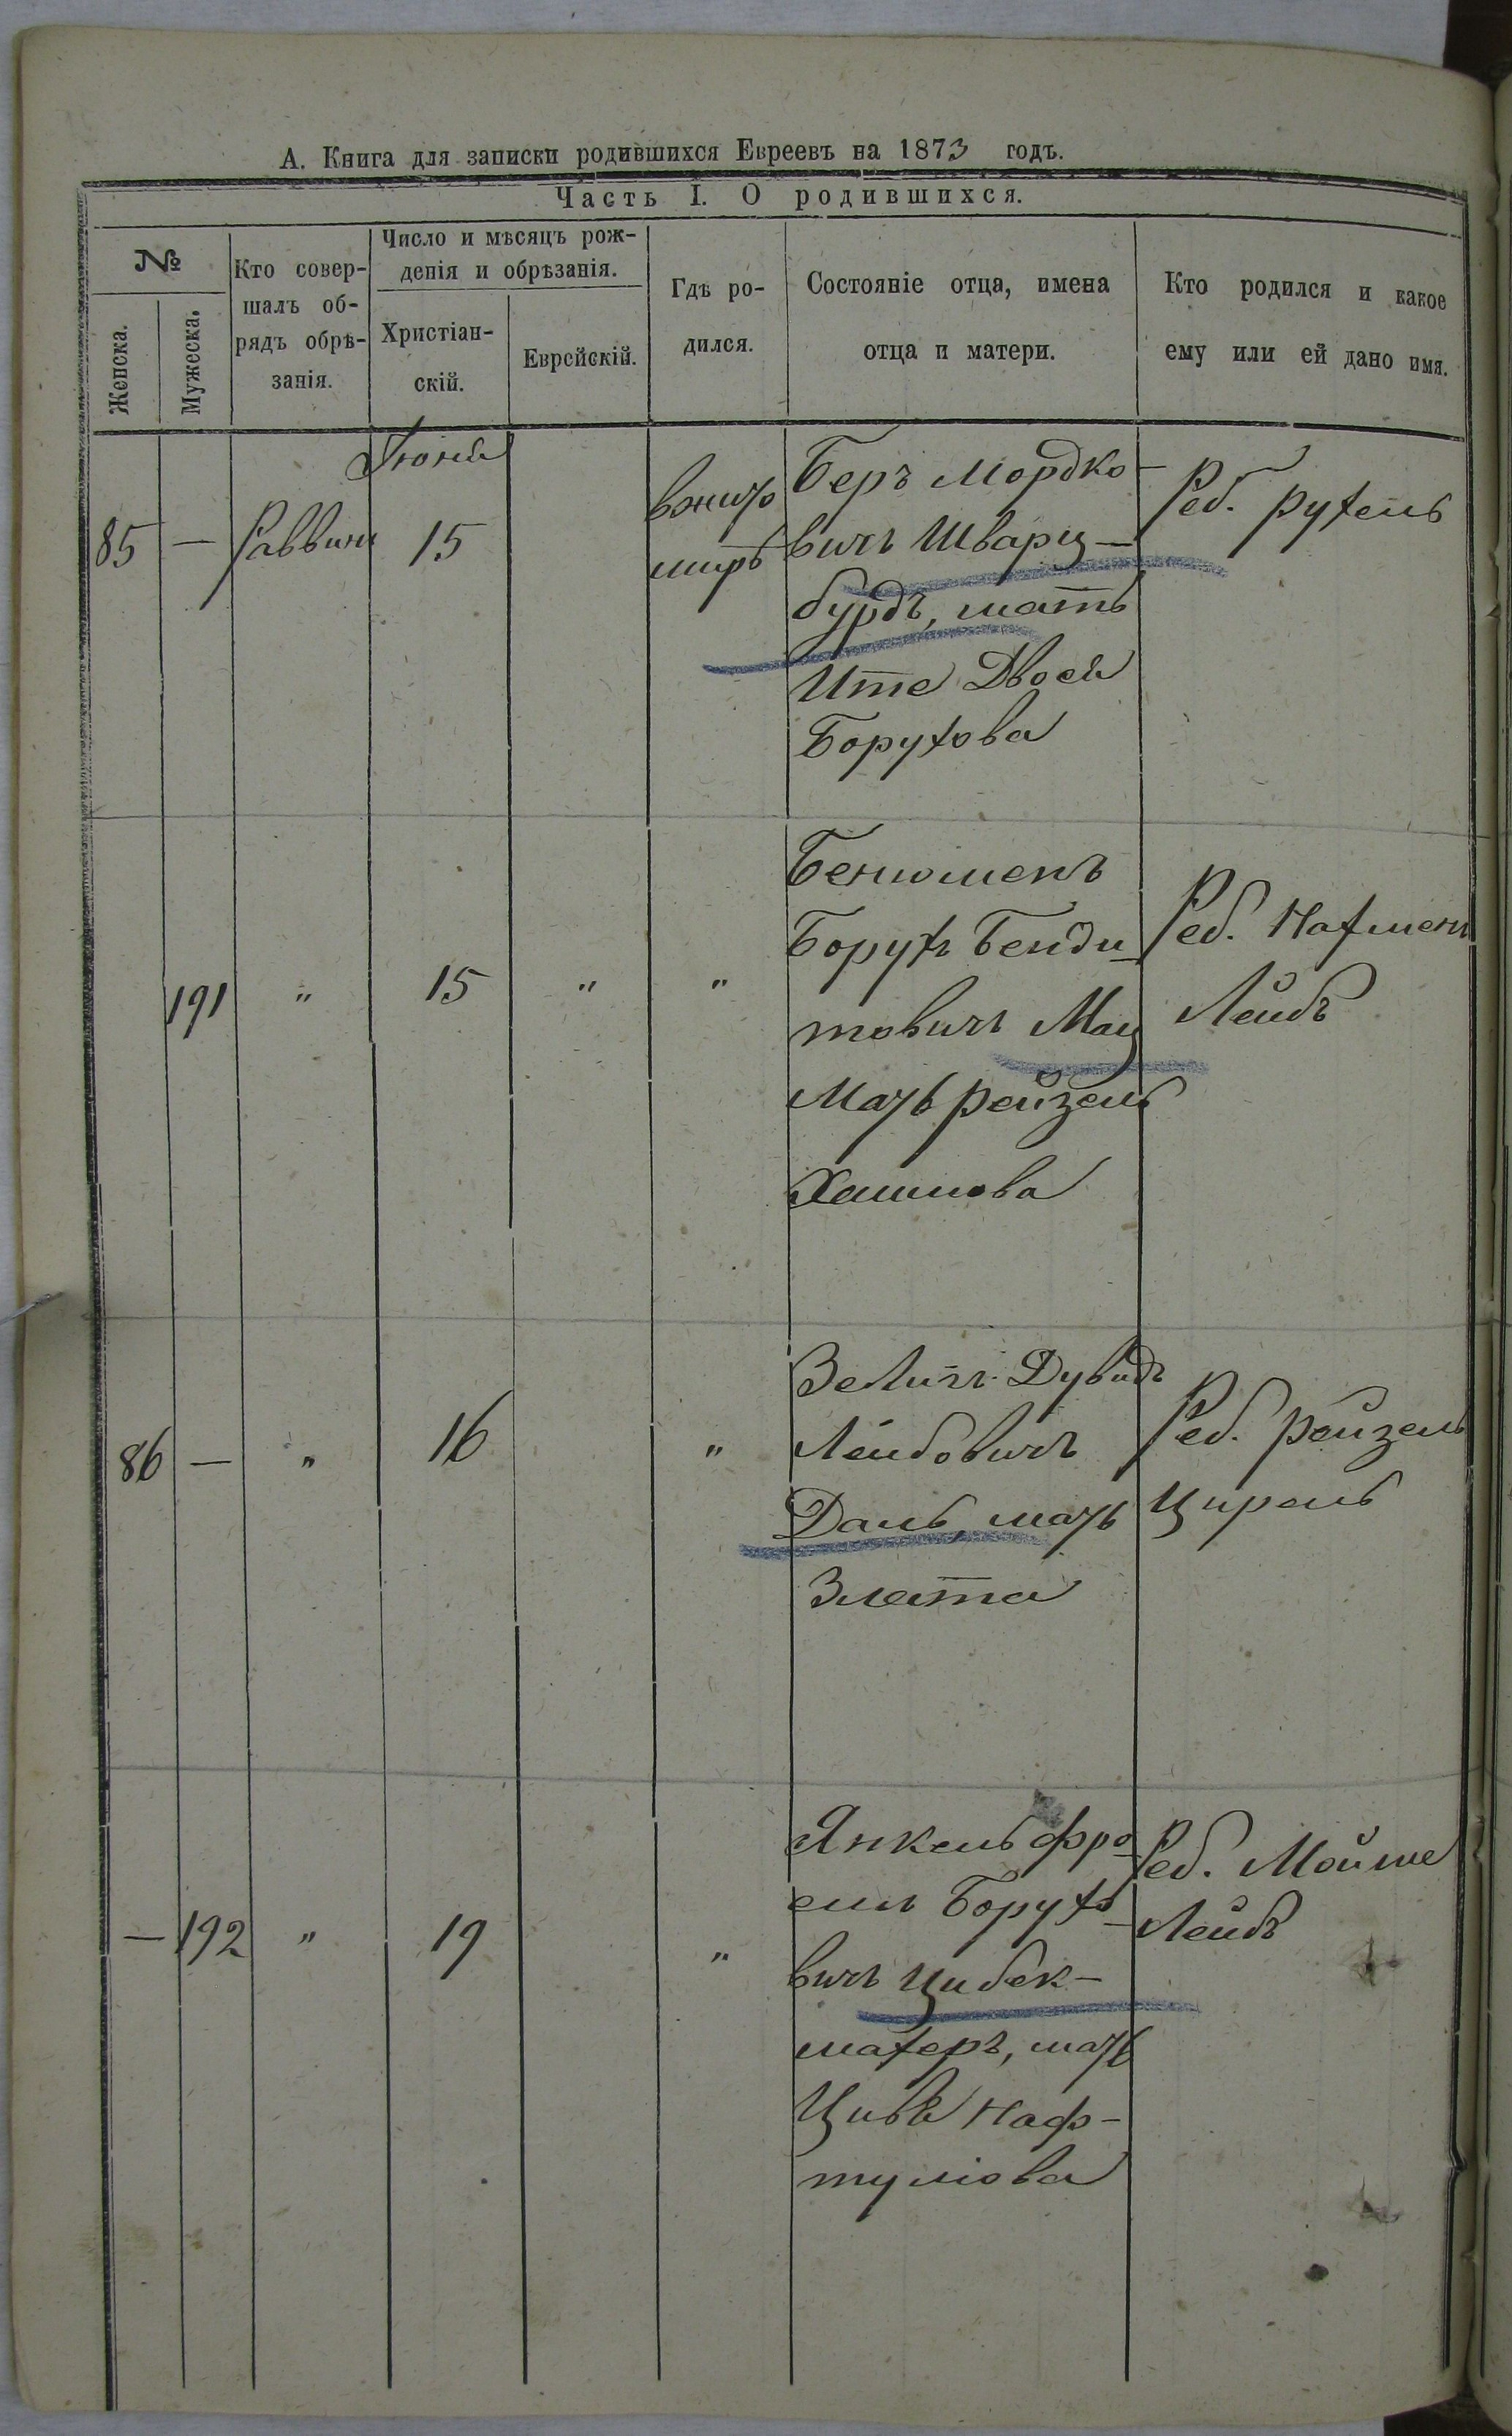 А. Книга для записки родившихся Евреевъ на 1873 годъ.
Часть I. О родившихся.
№
Женска.
Мужеска.
Кто совер-
шалъ об-
рядъ обрѣ-
занія.
Число и мѣсяцъ рож-
денія и обрѣзанія.
Христіан-
скій.
Еврейскій.
Гдѣ ро-
дился.
Состояніе отца, имена
отца и матери.
Кто родился и какое
ему или ей дано имя.
85
—
Раввинъ
Іюня
15
Беръ Мордко-
вичъ Шварц-
бурдъ, мать
Ите Двося
Борухова
Реб. Рухель
191
"
15
"
"
Бенюменъ
Борухъ Бенди-
товичъ Мац
Мать Рейзель
Хаимова
Реб. Нахмен
Лейбъ
86
—
"
16
"
Зелигъ Дувидъ
Лейбовичъ
Даль, мать
Злата
Реб. Рейзель
Цирель
—
192
"
19
"
Янкель Фро
еим Борухо-
вичъ Цибек-
махеръ, мать
Цивя Наф-
тулова
Реб. Мойше
Лейбъ